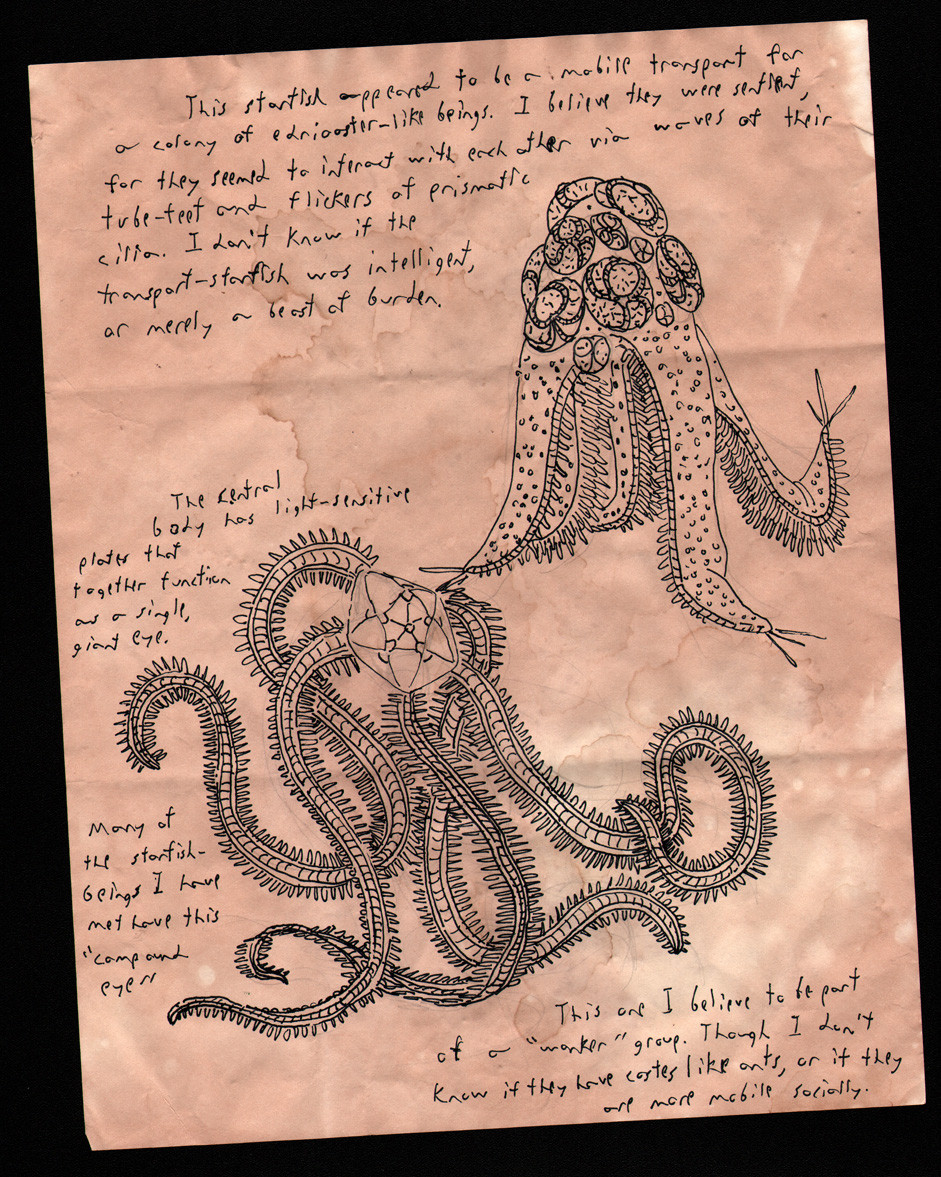 This starfish appeared to be a mobile transport for
a colony of edrioaster-like beings. I believe they were sentient,
for they seemed to interact with each other via waves of their
tube-feet and flickers of prismatic
cilia. I don't know if the
transport-starfish was intelligent,
or merely a beast of burden.
The central
body has light-sensitive
plates that
together function
as a single,
giant eye.
Many of
the starfish-
beings I have
met have this
"compound
eye"
This one I believe to be part
of a "worker" group. Though I don't
know if they have castes like ants, or if they
are more mobile socially.